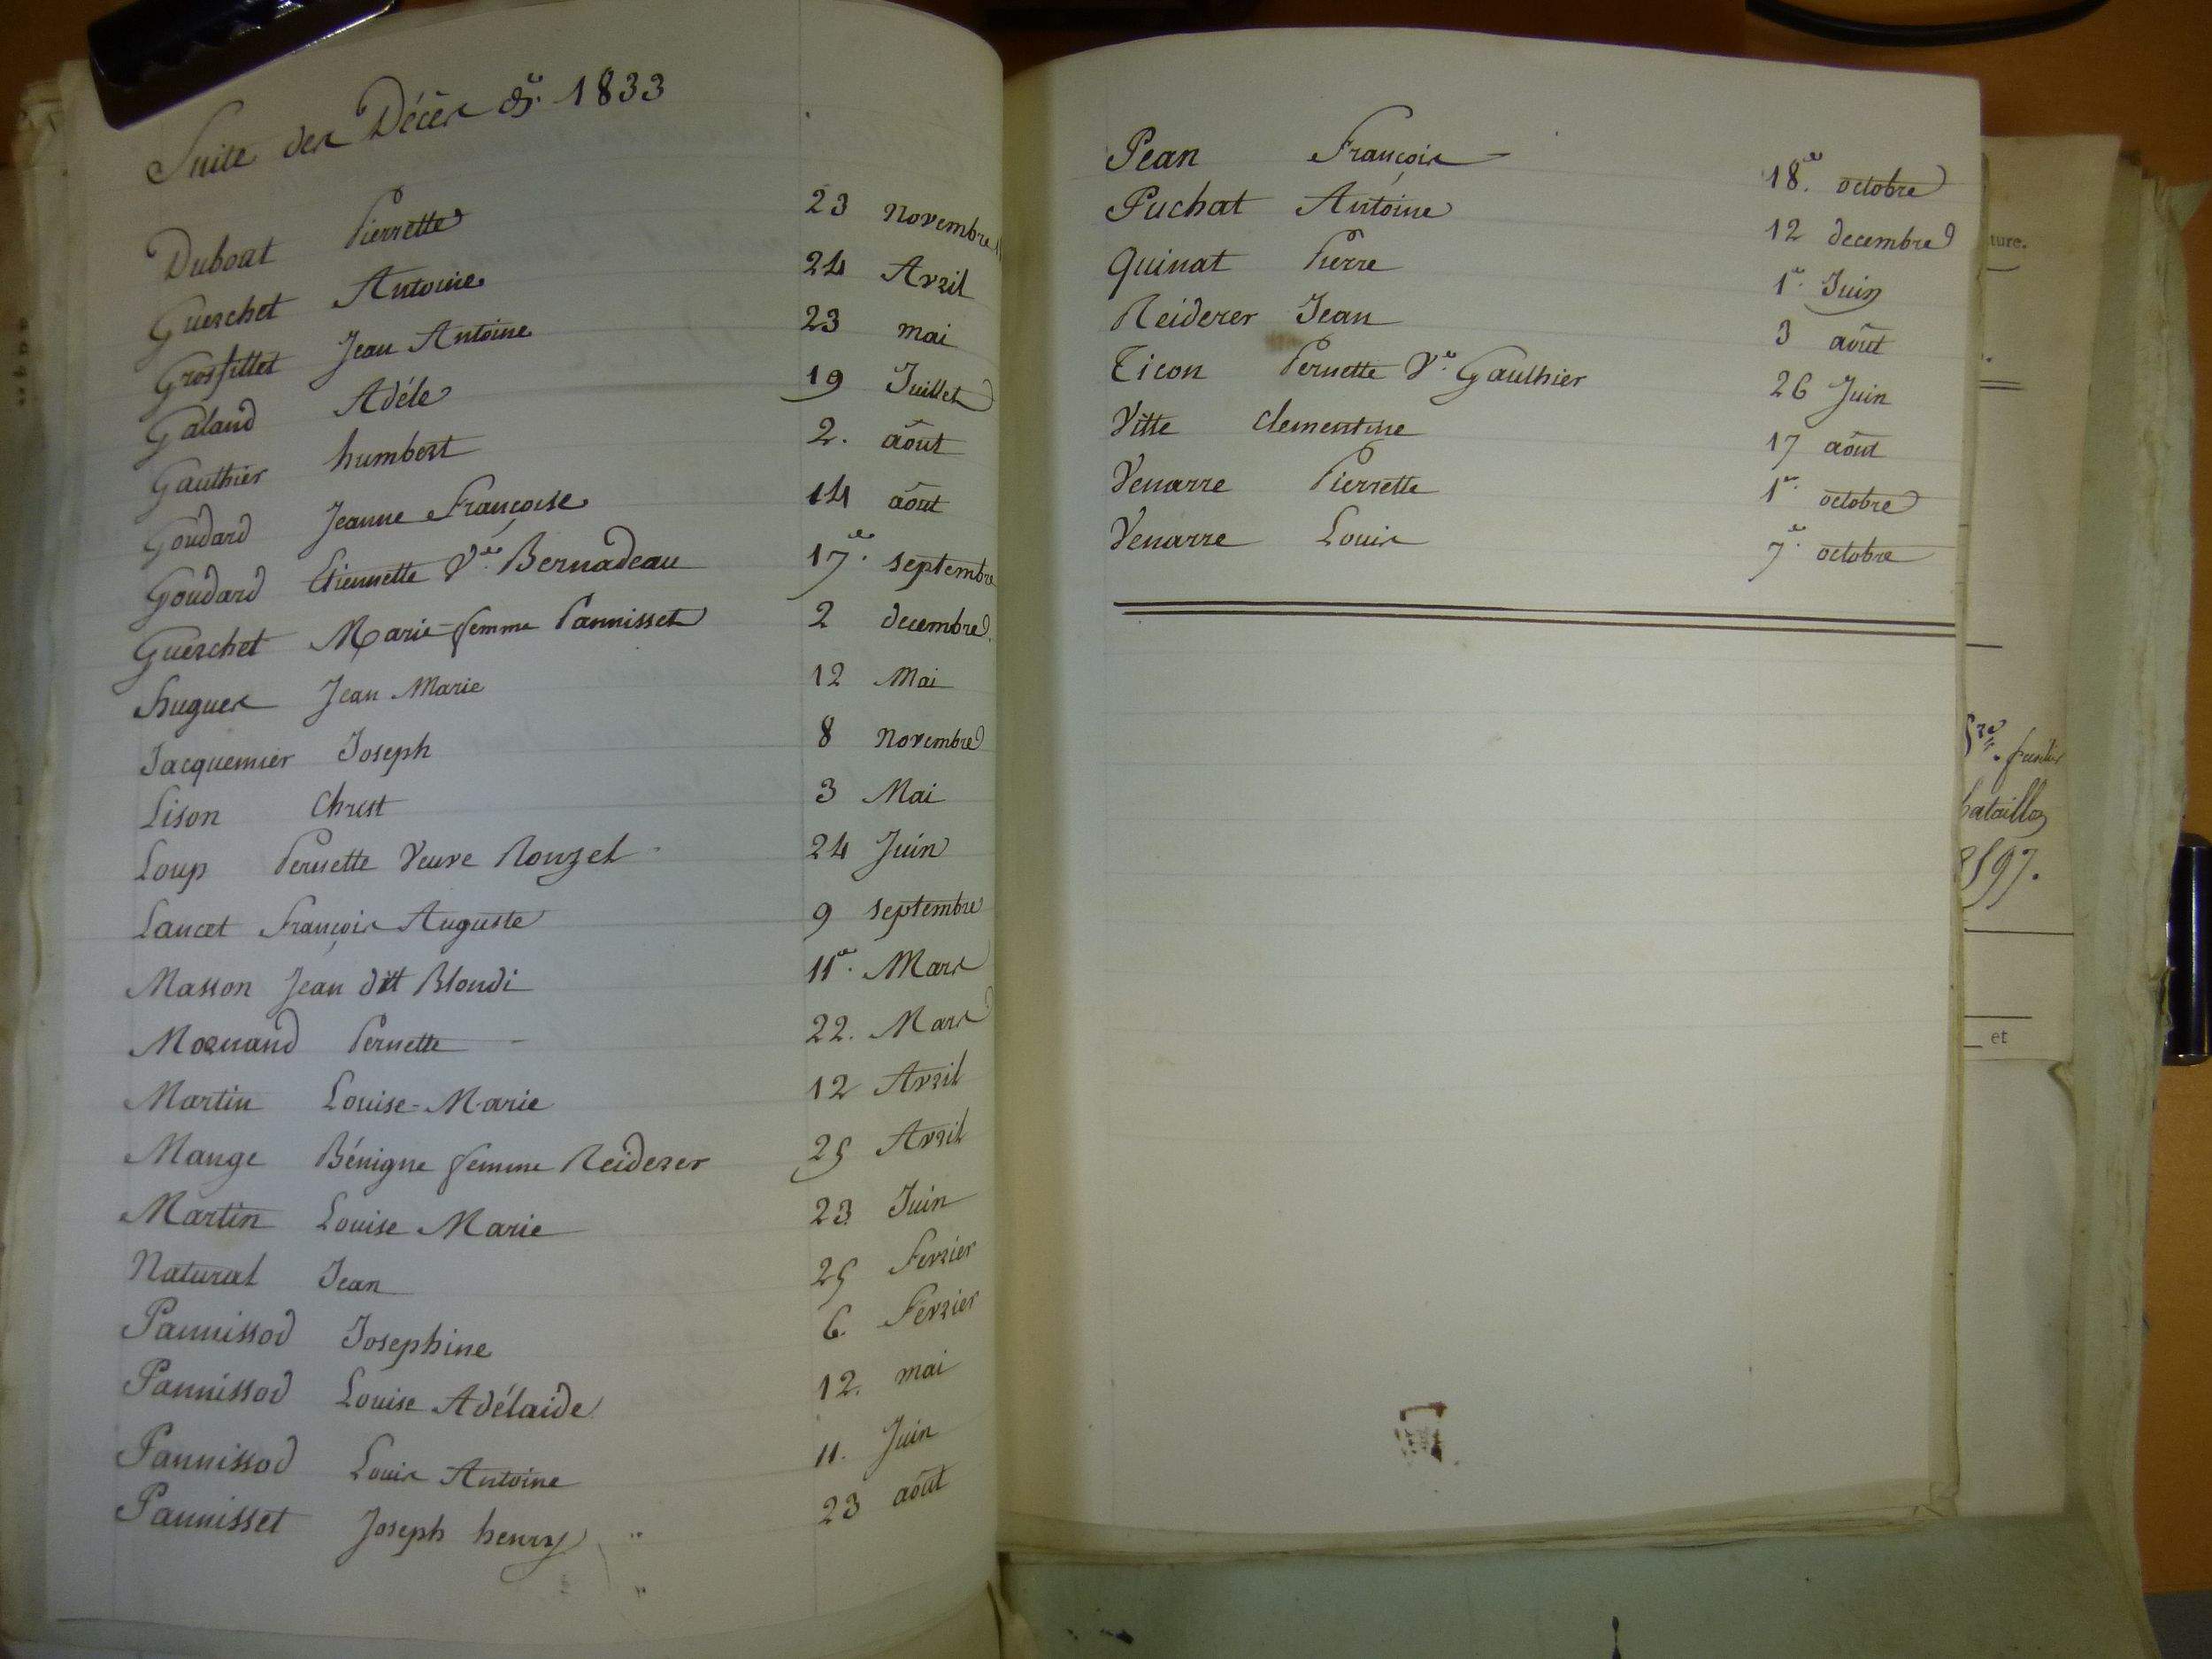 Suite des Décès de 1833
Duboat Pierrette 23 Novembre
Guerchet Antoine 24 Avril
Grosfillet Jean Antoine 23 mai
Galand Adéle 19 Juillet
Gauthier humbert 2. août
Goudard Jeanne Françoise 14 août
Goudard Etiennette Ve. Bernadeau 17e. septembre
Guerchet Marie femme Pannisset 2 decembre
hugues Jean Marie 12 Mai
Jacquemier Joseph 8 Novembre
Lison Christ 3 Mai
Loup Pernette Veuve Rouzet 24 Juin
Lancet François Auguste 9 septembre
Masson Jean dit Blondi 11e. Mars
Mornand Pernette 22. Mars
Martin Louise-Marie 12 Avril
Mange Bénigne femme Reiderer 25 Avril
Martin Louise Marie 23 Juin
Natural Jean 25 Fevrier
Pannissod Josephine 6. Fevrier
Pannissod Louise Adélaide 12. mai
Pannissod Louis Antoine 11. Juin
Pannisset Joseph henry 23 août
Pean François 18e. octobre
Puchat Antoine 12 decembre
Quinat Pierre 1er. Juin
Reiderer Jean 3 août
Ticon Pernette Ve. Gaulhier 26 Juin
Vitte Clementine 17 août
Venarre Pierrette 1er. octobre
Venarre Louis 7e. octobre
ture.
bataillon
897.
et